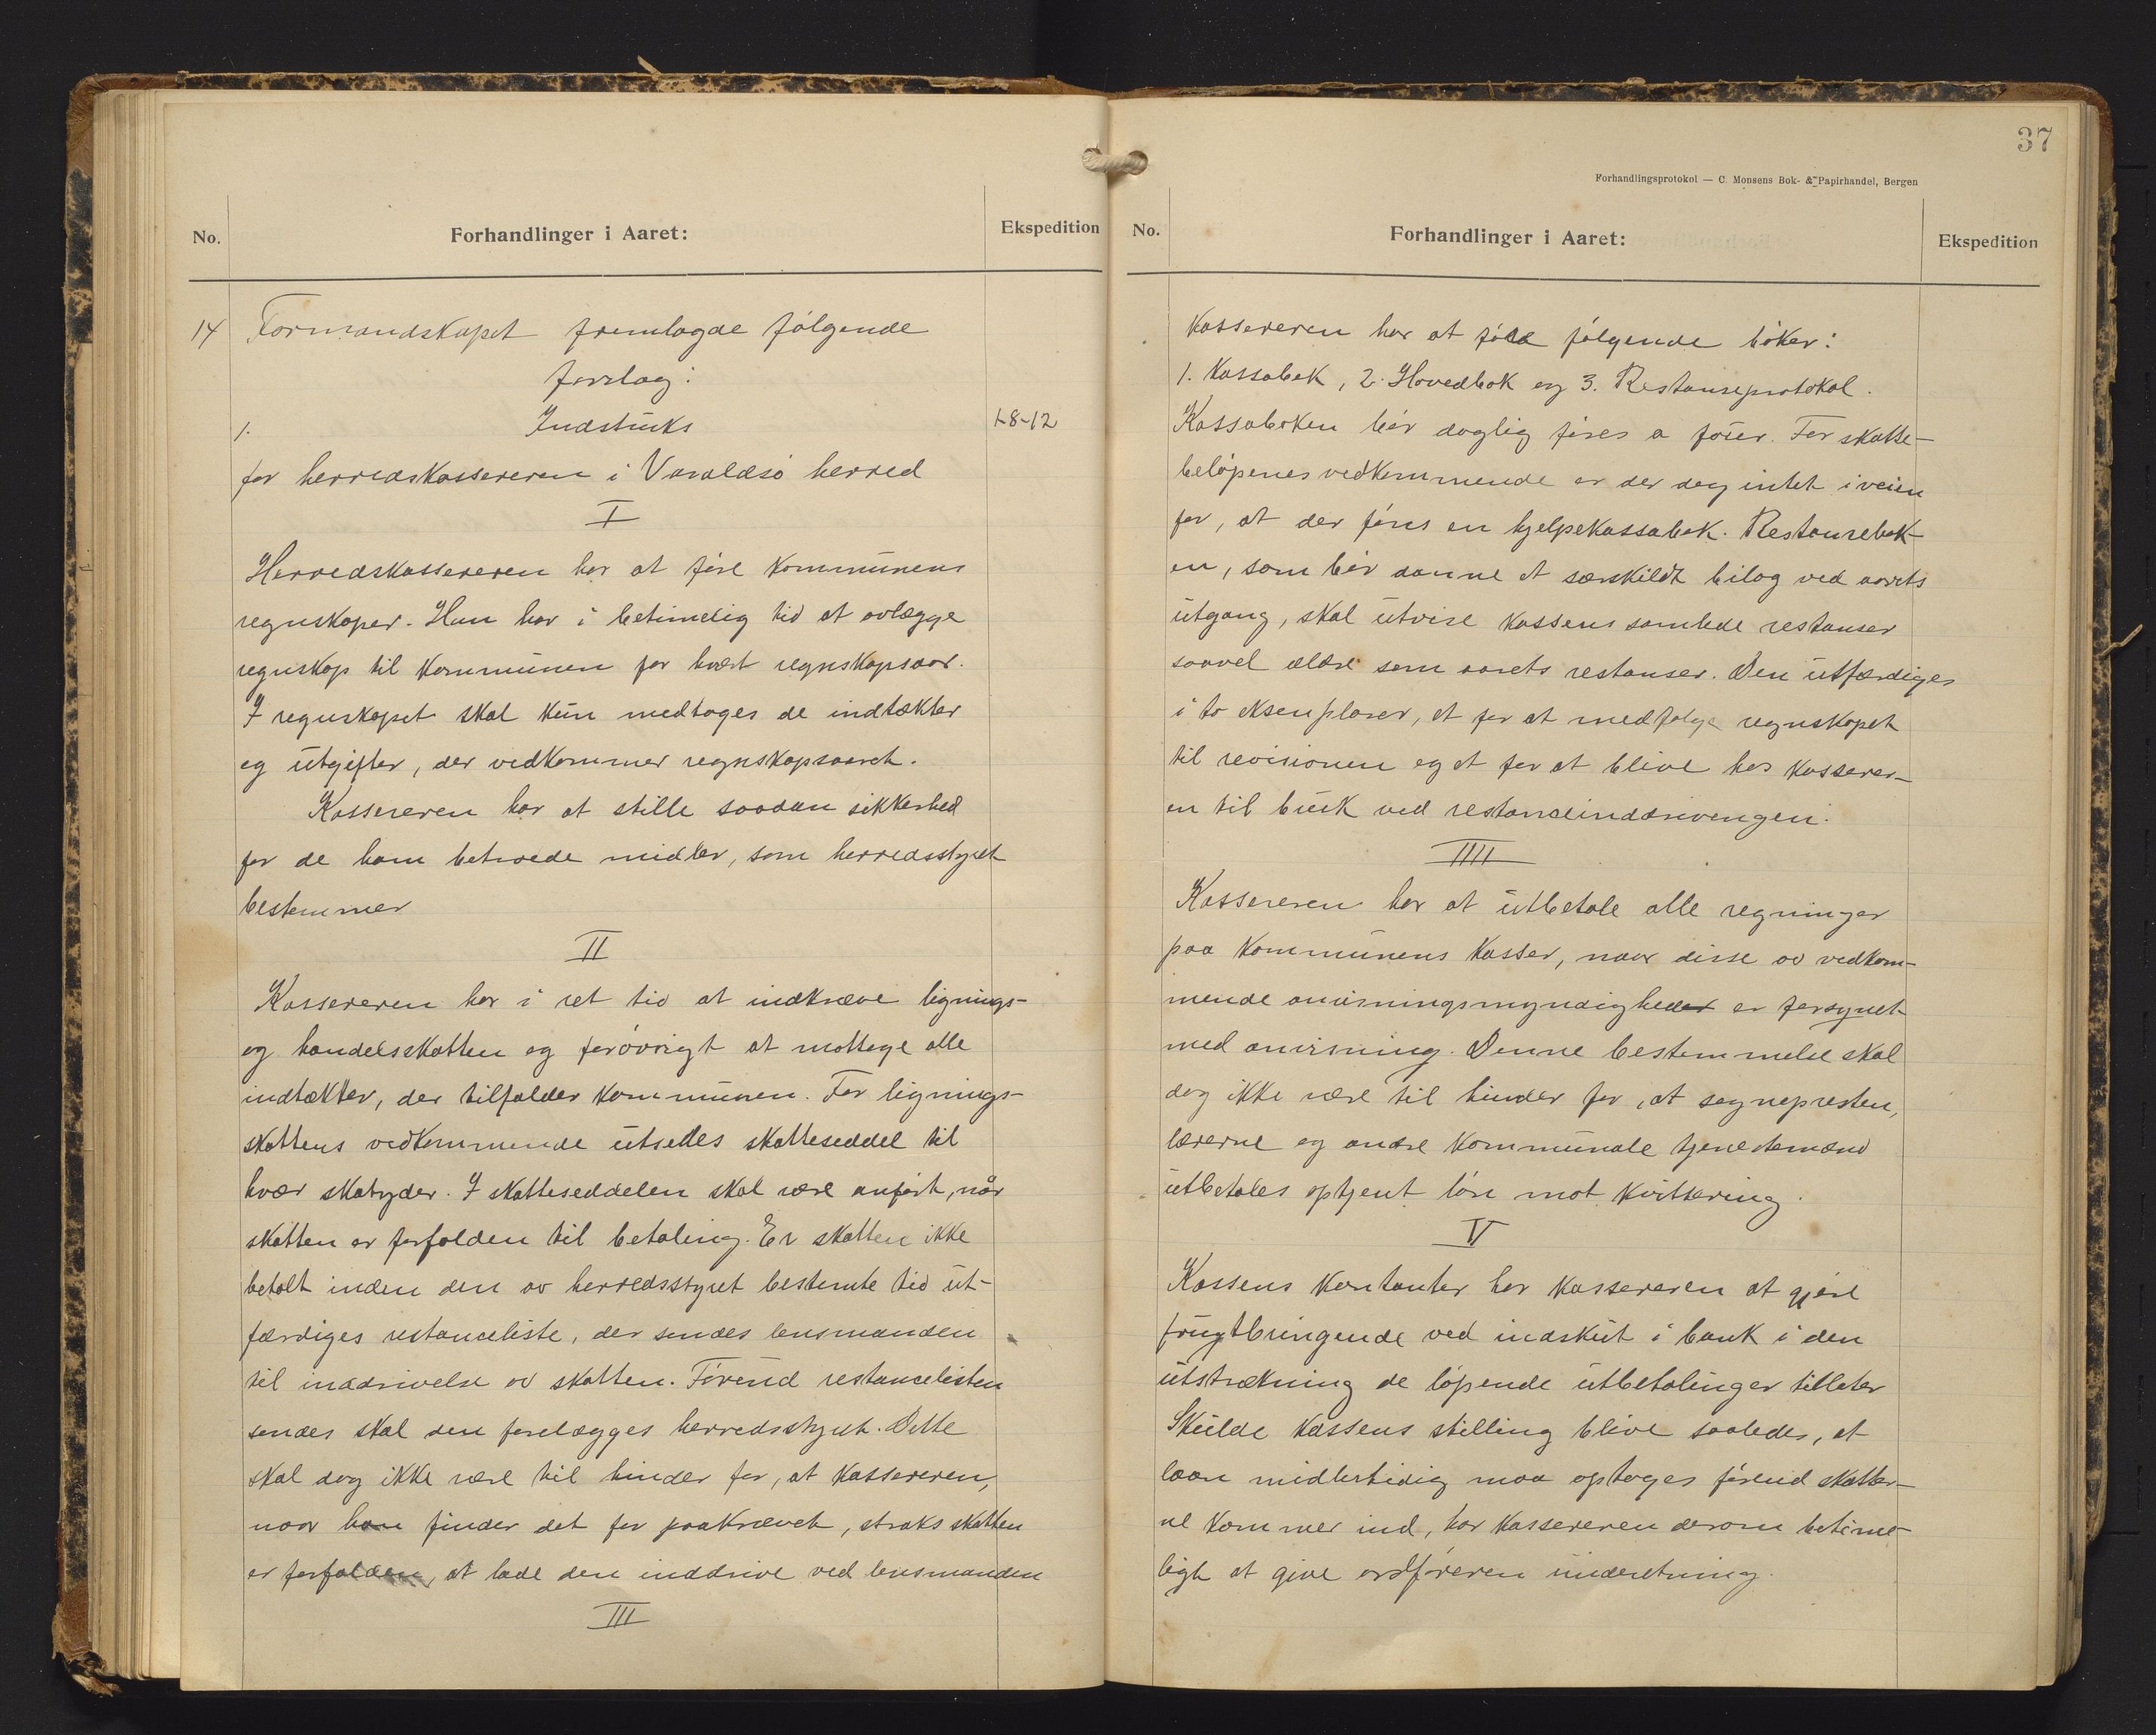 No.
Forhandlinger i Aaret:
Ekspedition
14 Formandskapet fremlagde følgende
forslag:
1. Indstruks
1-8-12
for herredskassereren i Varaldsø herred
I
Herredskassereren har at føre kommunens
regnskaper. Han har i betimelig tid at avlægge
regnskap til kommunen for hvært regnskapsaar.
I regnskapet skal kun medtages de indtækter
og utgifter, der vedkommer regnskapsaaret.
Kassereren har at stille saadan sikkerhed
for de ham betroede midler, som herredsstyret
bestemmer
II
Kassereren har i ret tid at indkræve lignings-
og handelsskatten og førøvrigt at mottage alle
indtækter, der tilfalder kommunen. For lignings-
skattens vedkommende utsedes skatteseddel til
hvær skatyder. I skatteseddelen skal være anført, når
skatten er forfalden til betaling. Er skatten ikke
betalt inden den av herredsstyret bestemte tid ut-
færdiges restanceliste, der sendes lensmanden
til inddrivelse av skatten. Førend restancelisten
sendes skal den forelægges herredsstyret. Dette
skal dog ikke være til hinder for, at kassereren,
naar han finder det for paakrævet, straks skatten
er forfalden, at lade den inddrive ved lensmanden
III
37
Forhandlingsprotokol — C. Monsens Bok- & Papirhandel, Bergen
No.
Forhandlinger i Aaret:
Ekspedition
Kassereren har at føre følgende bøker:
1. Kassabok, 2. Hovedbok og 3. Restanseprotokol.
Kassaboken bør daglig føres a jour. For skatte-
beløpenes vedkommende er der dog intet i veien
for, at der føres en hjelpekassabok. Restansebok-
en, som bør danne et særskildt bilag ved aarets
utgang, skal utvise kassens samlede restanser
saavel ældre som aarets restanser. Den utfærdiges
i to eksemplarer, et for at medfølge regnskapet
til revisionen og et for at blive hos kasserer-
en til bruk ved restanseinddrivengen.
IIII
Kassereren har at utbetale alle regninger
paa kommunens kasser, naar disse av vedkom-
mende anvisningsmyndigheder er forsynet
med anvisning. Denne bestemmelse skal
dog ikke være til hinder for, at sognepresten,
lærerne og andre kommunale tjenestemænd
utbetales optjent løn mot kvittering.
V
Kassens kontanter har kassereren at gjøre
frugtbringende ved indskut i bank i den
utstrækning de løpende utbetalinger tillater
Skulde kassens stilling blive saaledes, at
laan midlertidig maa optages førend skatter-
ne kommer ind, har kassereren derom betime-
ligt at give ordføreren underetning.